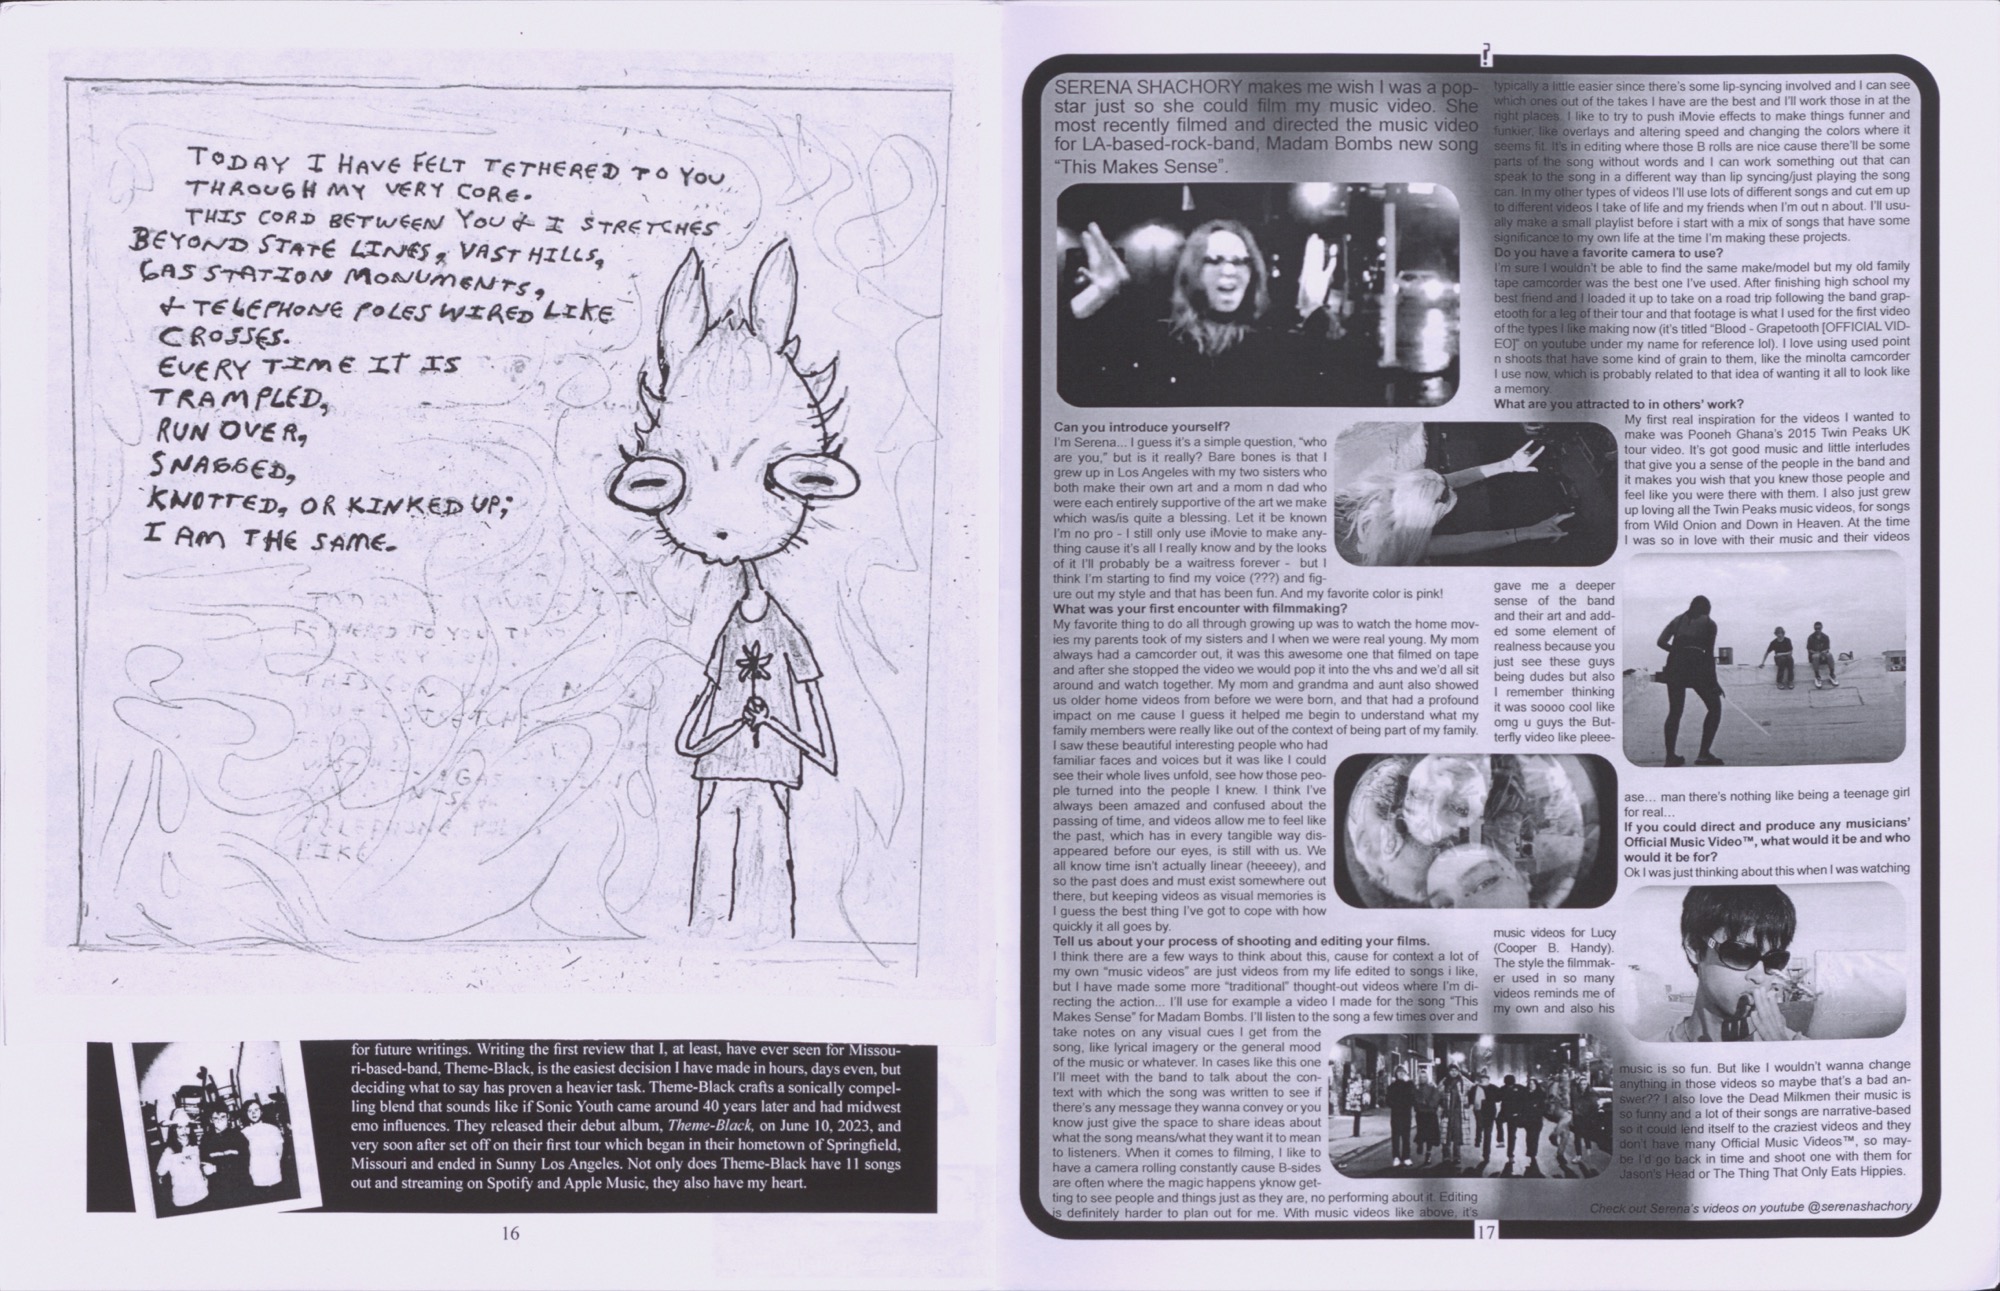 TODAY I HAVE FELT TETHERED TO YOU
THROUGH MY VERY CORE.
THIS CORD BETWEEN YOU & I STRETCHES
BEYOND STATE LINES, VAST HILLS,
GAS STATION MONUMENTS,
& TELEPHONE POLES WIRED LIKE
CROSSES.
EVERY TIME IT IS
TRAMPLED,
RUN OVER,
SNAGGED,
KNOTTED, OR KINKED UP;
I AM THE SAME.
for future writings. Writing the first review that I, at least, have ever seen for Missou-
ri-based-band, Theme-Black, is the easiest decision I have made in hours, days even, but
deciding what to say has proven a heavier task. Theme-Black crafts a sonically compel-
ling blend that sounds like if Sonic Youth came around 40 years later and had midwest
emo influences. They released their debut album, Theme-Black, on June 10, 2023, and
very soon after set off on their first tour which began in their hometown of Springfield,
Missouri and ended in Sunny Los Angeles. Not only does Theme-Black have 11 songs
out and streaming on Spotify and Apple Music, they also have my heart.
16
?
SERENA SHACHORY makes me wish I was a pop-
star just so she could film my music video. She
most recently filmed and directed the music video
for LA-based-rock-band, Madam Bombs new song
“This Makes Sense”.
Can you introduce yourself?
I'm Serena... I guess it's a simple question, “who
are you,” but is it really? Bare bones is that I
grew up in Los Angeles with my two sisters who
both make their own art and a mom n dad who
were each entirely supportive of the art we make
which was/is quite a blessing. Let it be known
I'm no pro - I still only use iMovie to make any-
thing cause it's all I really know and by the looks
of it I'll probably be a waitress forever - but I
think I'm starting to find my voice (???) and fig-
ure out my style and that has been fun. And my favorite color is pink!
What was your first encounter with filmmaking?
My favorite thing to do all through growing up was to watch the home mov-
ies my parents took of my sisters and I when we were real young. My mom
always had a camcorder out, it was this awesome one that filmed on tape
and after she stopped the video we would pop it into the vhs and we'd all sit
around and watch together. My mom and grandma and aunt also showed
us older home videos from before we were born, and that had a profound
impact on me cause I guess it helped me begin to understand what my
family members were really like out of the context of being part of my family.
I saw these beautiful interesting people who had
familiar faces and voices but it was like I could
see their whole lives unfold, see how those peo-
ple turned into the people I knew. I think I've
always been amazed and confused about the
passing of time, and videos allow me to feel like
the past, which has in every tangible way dis-
appeared before our eyes, is still with us. We
all know time isn't actually linear (heeeey), and
so the past does and must exist somewhere out
there, but keeping videos as visual memories is
I guess the best thing I've got to cope with how
quickly it all goes by.
Tell us about your process of shooting and editing your films.
I think there are a few ways to think about this, cause for context a lot of
my own “music videos” are just videos from my life edited to songs i like,
but I have made some more “traditional” thought-out videos where I'm di-
recting the action... I'll use for example a video I made for the song “This
Makes Sense” for Madam Bombs. I'll listen to the song a few times over and
take notes on any visual cues I get from the
song, like lyrical imagery or the general mood
of the music or whatever. In cases like this one
I'll meet with the band to talk about the con-
text with which the song was written to see if
there's any message they wanna convey or you
know just give the space to share ideas about
what the song means/what they want it to mean
to listeners. When it comes to filming, I like to
have a camera rolling constantly cause B-sides
are often where the magic happens yknow get-
ting to see people and things just as they are, no performing about it. Editing
is definitely harder to plan out for me. With music videos like above, it's
typically a little easier since there's some lip-syncing involved and I can see
which ones out of the takes I have are the best and I'll work those in at the
right places. I like to try to push iMovie effects to make things funner and
funkier, like overlays and altering speed and changing the colors where it
seems fit. It's in editing where those B rolls are nice cause there'll be some
parts of the song without words and I can work something out that can
speak to the song in a different way than lip syncing/just playing the song
can. In my other types of videos I'll use lots of different songs and cut em up
to different videos I take of life and my friends when I'm out n about. I'll usu-
ally make a small playlist before i start with a mix of songs that have some
significance to my own life at the time I'm making these projects.
Do you have a favorite camera to use?
I'm sure I wouldn't be able to find the same make/model but my old family
tape camcorder was the best one I've used. After finishing high school my
best friend and I loaded it up to take on a road trip following the band grap-
etooth for a leg of their tour and that footage is what I used for the first video
of the types I like making now (it's titled “Blood - Grapetooth [OFFICIAL VID-
EO]” on youtube under my name for reference lol). I love using used point
n shoots that have some kind of grain to them, like the minolta camcorder
I use now, which is probably related to that idea of wanting it all to look like
a memory.
What are you attracted to in others' work?
My first real inspiration for the videos I wanted to
make was Pooneh Ghana's 2015 Twin Peaks UK
tour video. It's got good music and little interludes
that give you a sense of the people in the band and
it makes you wish that you knew those people and
feel like you were there with them. I also just grew
up loving all the Twin Peaks music videos, for songs
from Wild Onion and Down in Heaven. At the time
I was so in love with their music and their videos
gave me a deeper
sense of the band
and their art and add-
ed some element of
realness because you
just see these guys
being dudes but also
I remember thinking
it was soooo cool like
omg u guys the But-
terfly video like pleee-
ase... man there's nothing like being a teenage girl
for real...
If you could direct and produce any musicians'
Official Music Video™, what would it be and who
would it be for?
Ok I was just thinking about this when I was watching
music videos for Lucy
(Cooper B. Handy).
The style the filmmak-
er used in so many
videos reminds me of
my own and also his
music is so fun. But like I wouldn't wanna change
anything in those videos so maybe that's a bad an-
swer?? I also love the Dead Milkmen their music is
so funny and a lot of their songs are narrative-based
so it could lend itself to the craziest videos and they
don't have many Official Music Videos™, so may-
be I'd go back in time and shoot one with them for
Jason's Head or The Thing That Only Eats Hippies.
Check out Serena's videos on youtube @serenashachory
17